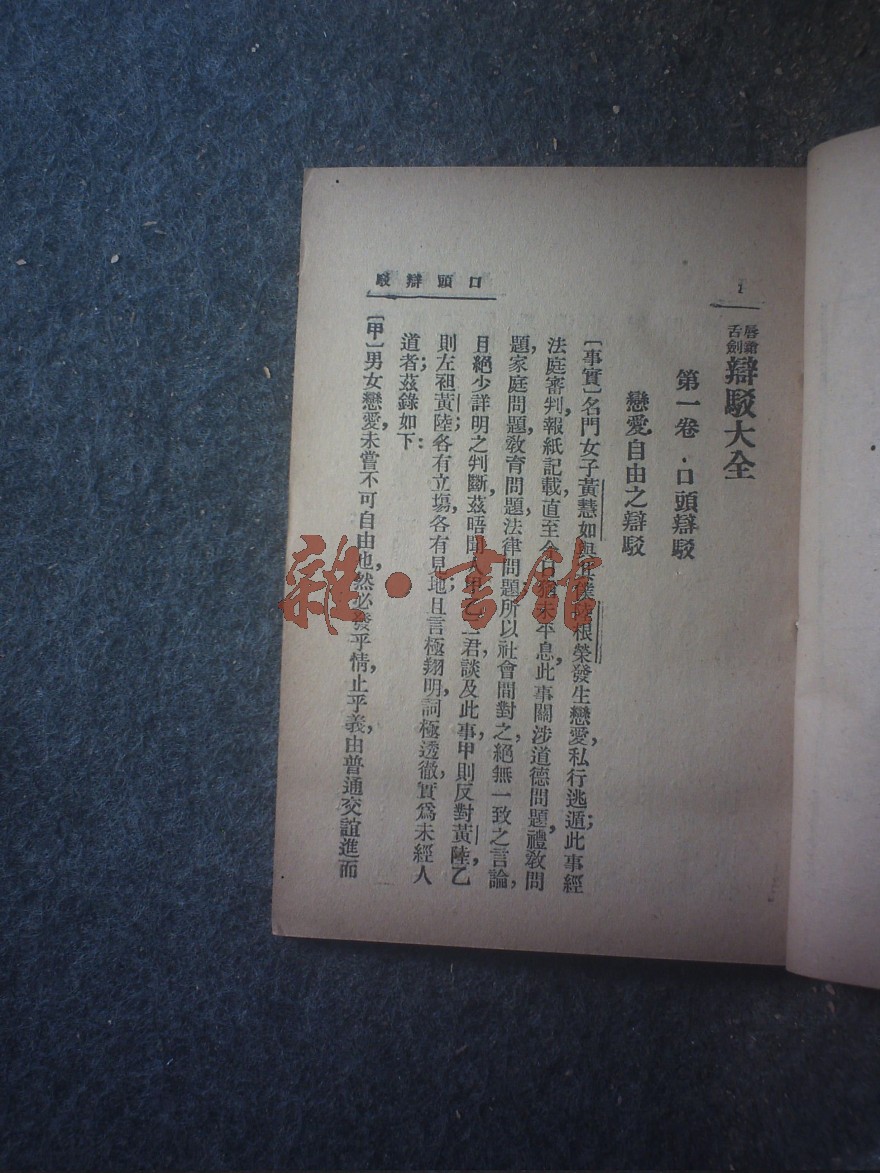 2
唇鎗舌劍 辯駁大全
第一卷・口頭辯駁
戀愛自由之辯駁
〔事實〕名門女子黃慧如與其僕陸根榮發生戀愛，私行逃遁；此事經
法庭審判，報紙記載，直至今日，猶未平息，此事關涉道德問題，禮敎問
題，家庭問題，敎育問題，法律問題，所以社會間對之，絕無一致之言論，
且絕少詳明之判斷，茲晤聞人甲乙二君，談及此事，甲則反對黃陸，乙
則左袒黃陸；各有立塲，各有見地；且言極翔明，詞極透徹，實爲未經人
道者；茲錄如下：
〔甲〕男女戀愛，未嘗不可自由也，然必發乎情，止乎義，由普通交誼，進而
口頭辯駁
雜・書館